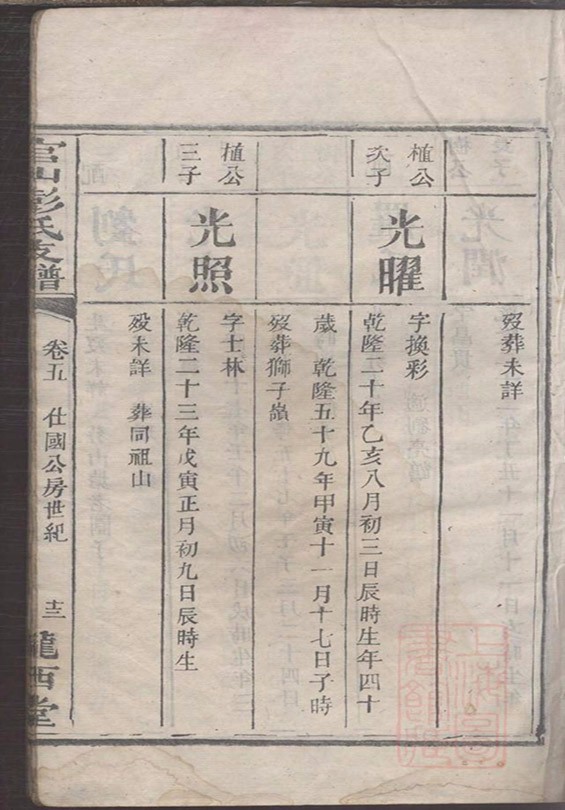 歿葬未詳
植公
次子
光曜
字換彩
乾隆二十年乙亥八月初三日辰時生年四十
歲 乾隆五十九年甲寅十一月十七日子時
歿葬獅子嶺
植公
三子
光照
字士林
乾隆二十三年戊寅正月初九日辰時生
歿未詳 葬同祖山
官山彭氏支譜
卷五 仕國公房世紀 十三
隴西堂